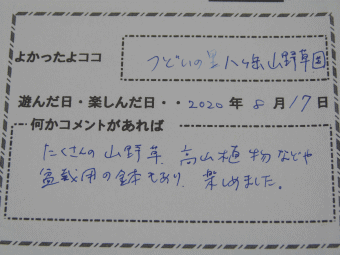 よかったよココ
つどいの里八ヶ岳山野草園
遊んだ日・楽しんだ日・・2020年8月17日
何かコメントがあれば
たくさんの山野草、高山植物などや
盆栽用の鉢もあり、楽しめました。